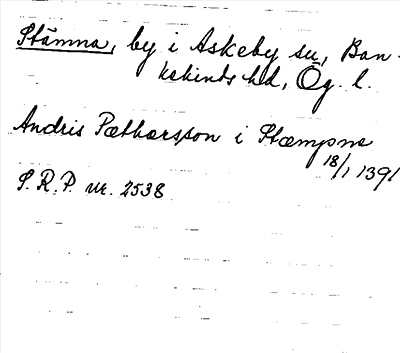 Stämna, by i Askeby sn, Ban-
kekinds hd, Ög. l.
Andris Pætharsson i Stæmpne
18/1 1391
S. R. P. nr. 2538